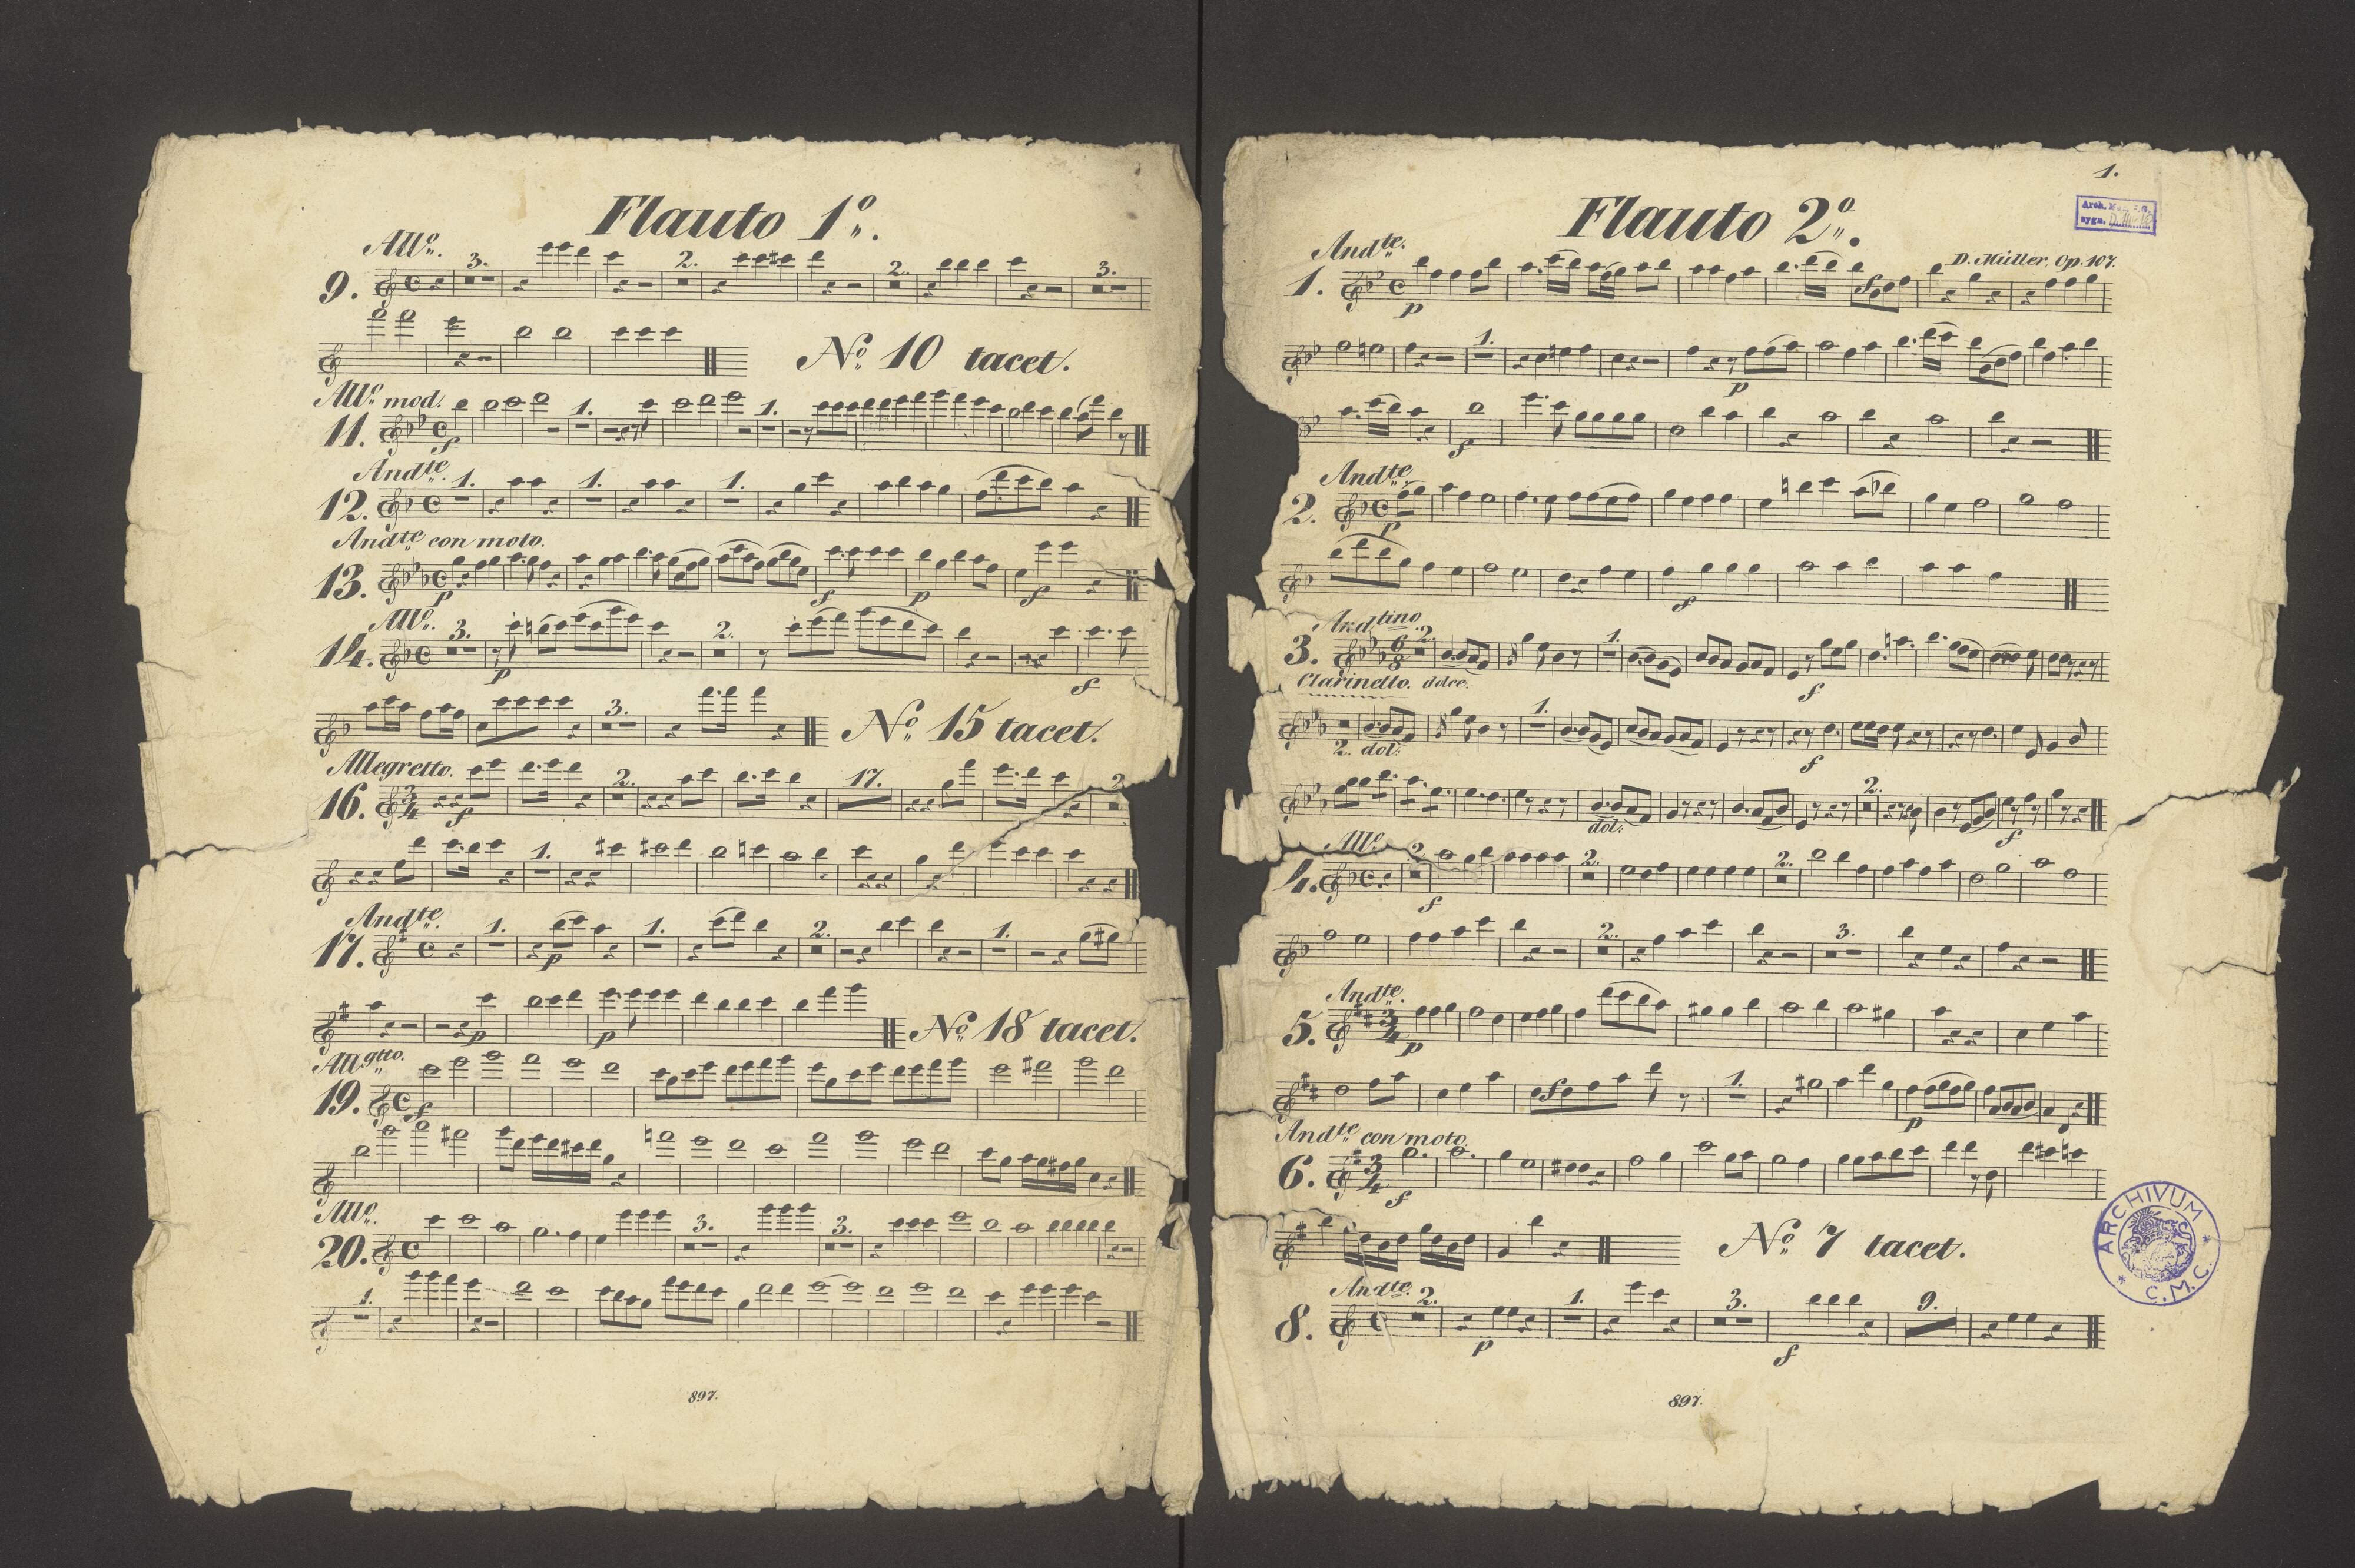 Flauto 1o.
Allo.
9.
3.
2.
2.
3.
No. 10 tacet.
Allo. mod.
11.
f
1.
1.
Andte.
12.
1.
1.
1.
Andte con moto.
13.
p
f
p
f
Allo.
14.
3.
p
2.
f
3.
No. 15 tacet.
Allegretto.
16.
3/4
f
2.
17.
2
1.
Andte.
17.
1.
p
1.
2.
1.
p
p
No. 18 tacet.
Allgtto.
19.
f
Allo.
20.
3.
3.
1.
897.
1.
Flauto 2o.
Andte.
D. Müller, Op. 107.
1.
p
f
1.
p
f
Andte.
2.
p
f
Andtino
3.
6/8
2.
1.
f
Clarinetto. dolce.
2. dol:
1.
f
dol:
2.
f
Allo.
4.
2.
f
2.
2.
2.
3.
Andte.
5.
3/4
p
f
1.
p
Andte con moto.
6.
3/4
f
No. 7 tacet.
Andte.
8.
2.
p
1.
3.
f
9.
897.
ARCHIVUM
C.M.C.